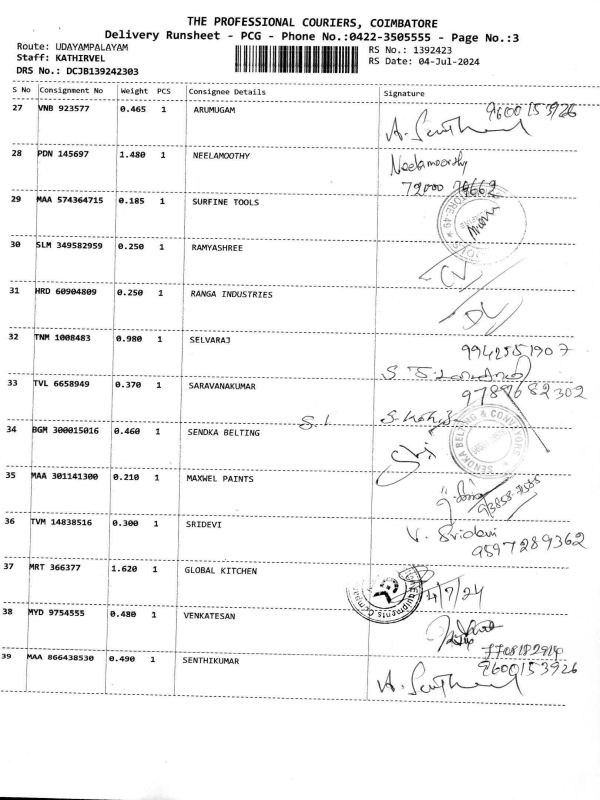 THE PROFESSIONAL COURIERS, COIMBATORE
Delivery Runsheet - PCG - Phone No.:0422-3505555 - Page No.:3
Route: UDAYAMPALAYAM RS No.: 1392423
Staff: KATHIRVEL RS Date: 04-Jul-2024
DRS No.: DCJB139242303
S No Consignment No Weight PCS Consignee Details Signature
27 VNB 923577 0.465 1 ARUMUGAM 9600153926
A. Senthil
28 PDN 145697 1.480 1 NEELAMOOTHY Neelamoorthy
72000 79662
29 MAA 574364715 0.185 1 SURFINE TOOLS
30 SLM 349582959 0.250 1 RAMYASHREE
31 HRD 60904809 0.250 1 RANGA INDUSTRIES
32 TNM 1008483 0.980 1 SELVARAJ 9942551907
33 TVL 6658949 0.370 1 SARAVANAKUMAR 9789682302
34 BGM 300015016 0.460 1 SENDKA BELTING
SENDKA BELTING & CONVEYORS
35 MAA 301141300 0.210 1 MAXWEL PAINTS
36 TVM 14838516 0.300 1 SRIDEVI V. Sridevi
9597289362
37 MRT 366377 1.620 1 GLOBAL KITCHEN 4/7/24
38 MYD 9754555 0.480 1 VENKATESAN
39 MAA 866438530 0.490 1 SENTHIKUMAR 9600153926
A. Senthil